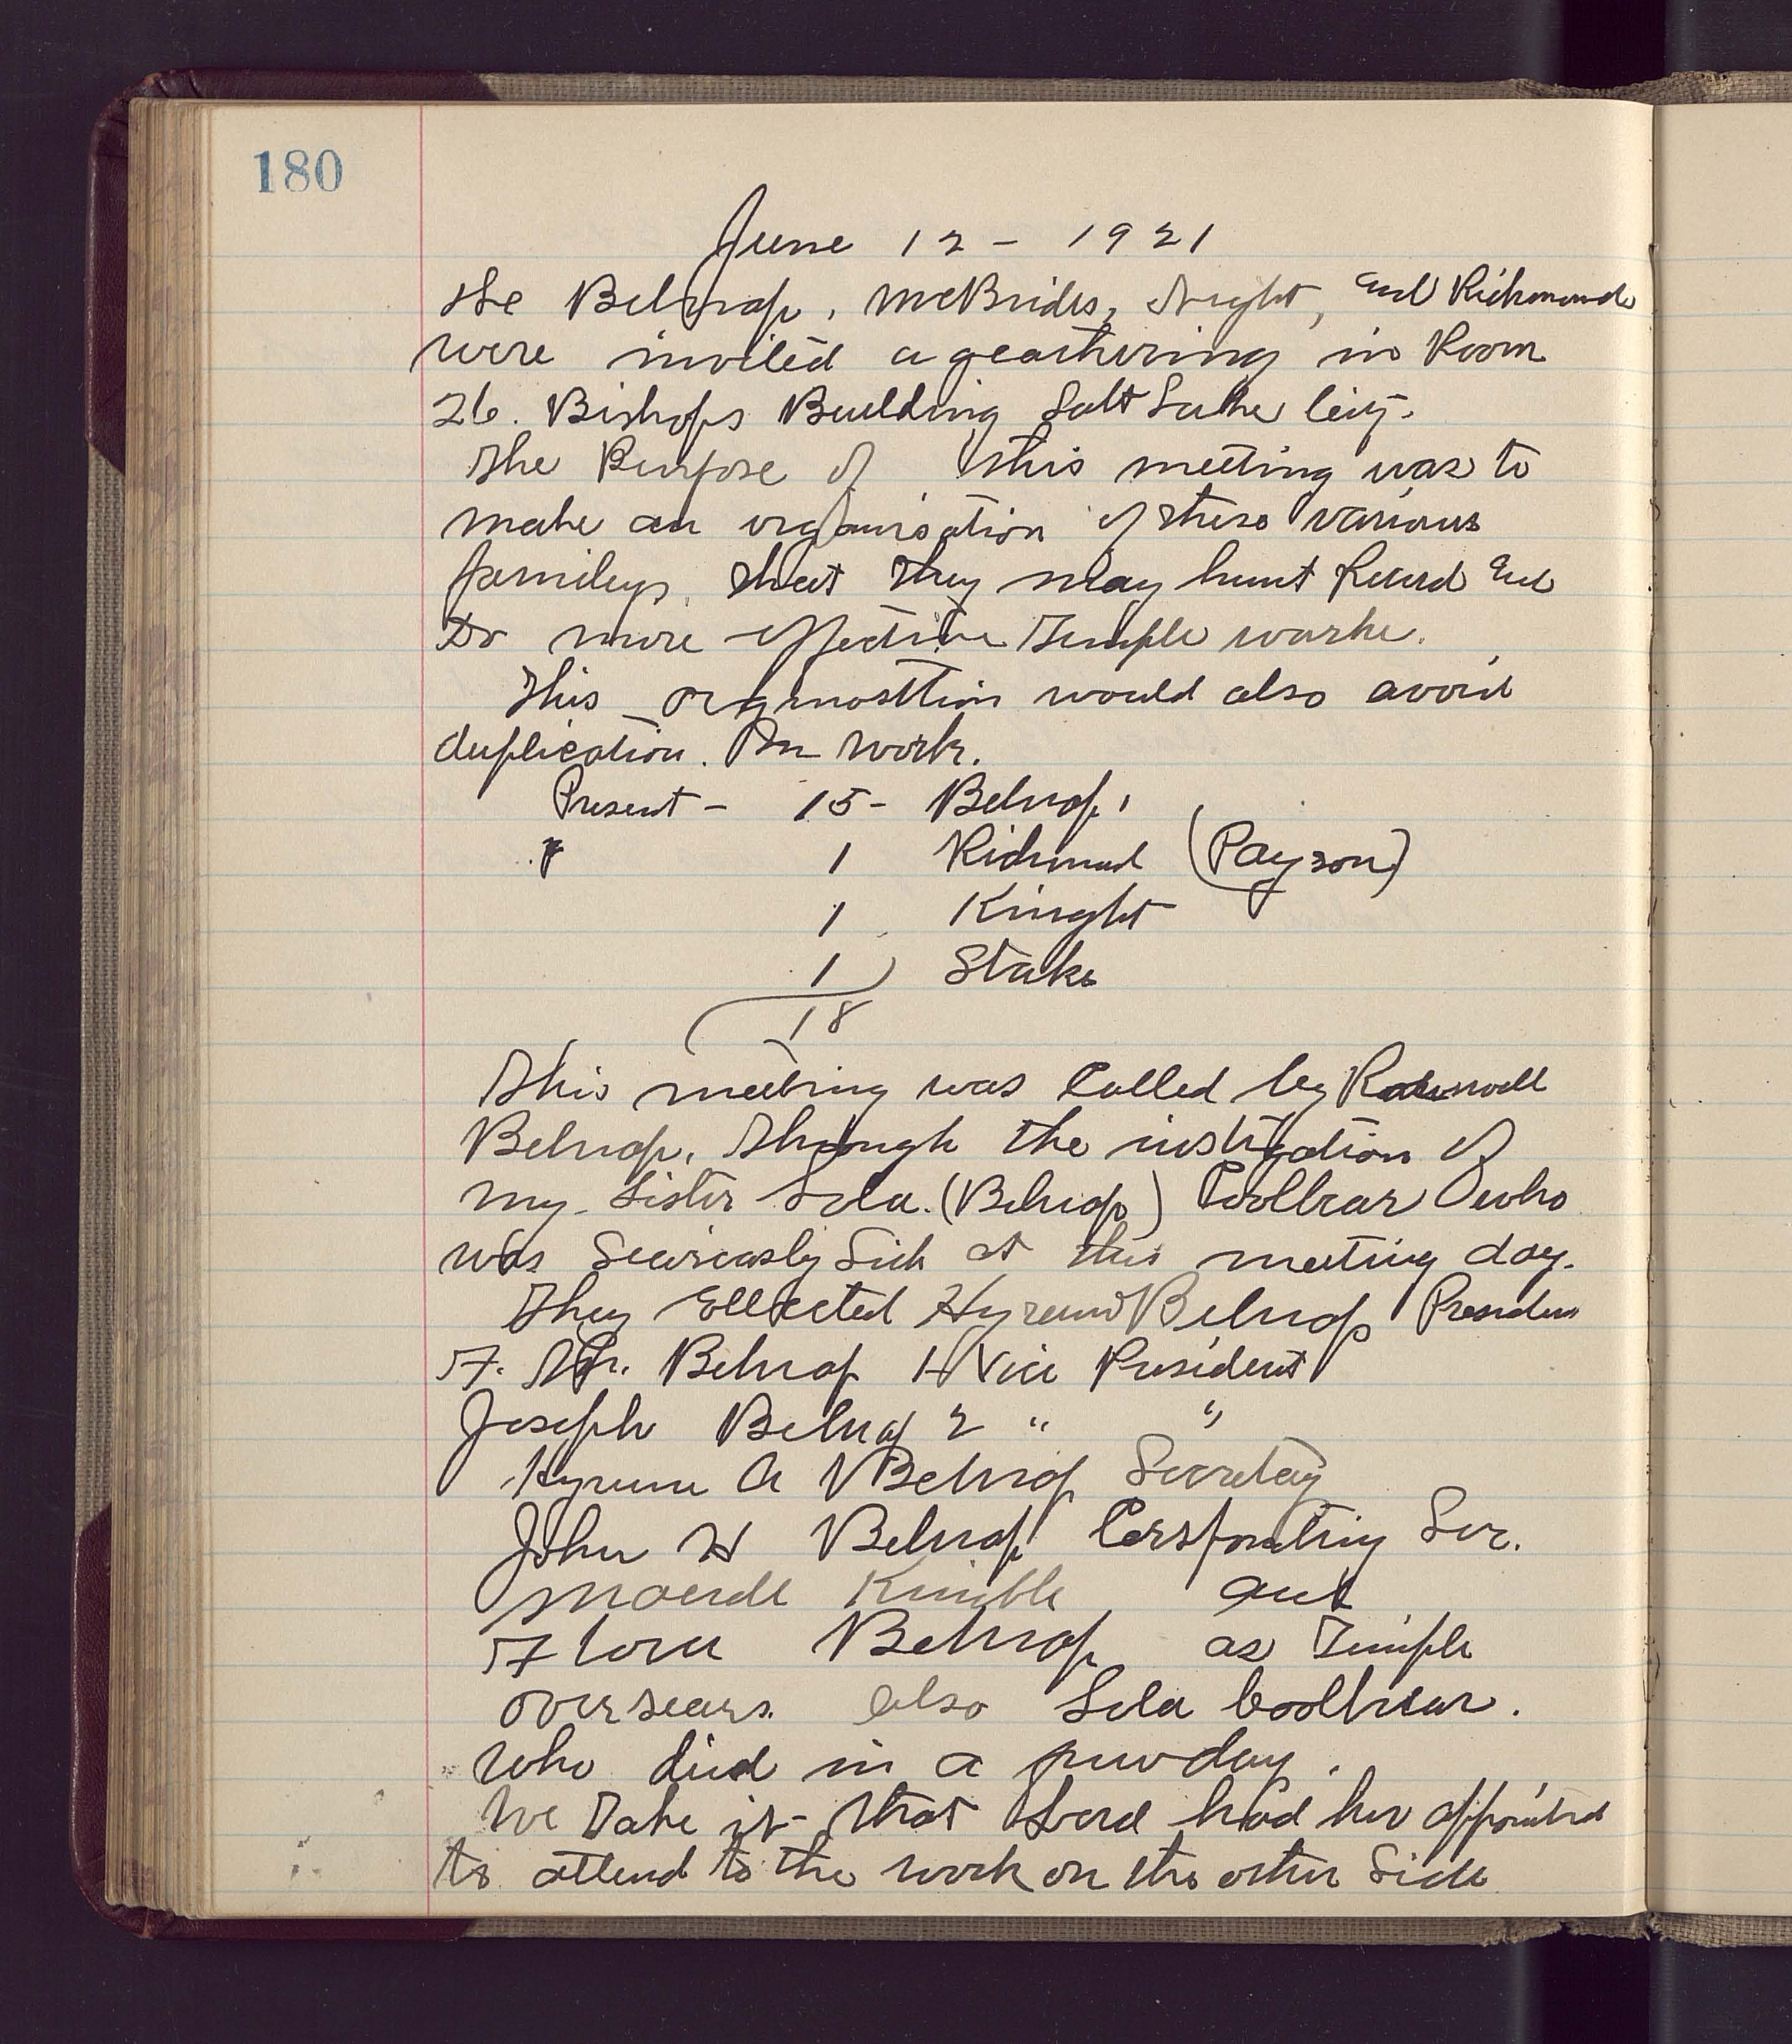 180
June 12 - 1921
The Belnap, McBrides, Knight, and Richmonds
were invited a geathering in Room
26. Bishops Building Salt Lake City.
The Purpose of this meeting was to
make an organisation of these various
famileys, that they may hunt Record and
Do more effective Temple worke.
This organosttion would also avoid
duplication. In work.
Present - 15 - Belnap,
" 1 Richmond (Payson)
1 Kinght
1 Stake
18
This meeting was Called by
Belnap, Through the instigation of
my Sister Lola. (Belnap) Coolbear who
was Seeriously Sick at this meeting day.
They Ellected Hyrum Belnap President
Belnap 1st Vice President
Joseph Belnap 2 " "
Hyrum A Belnap Secretay
John H Belnap Corsponting Sec.
Maude Kimble and
Flora Belnap as Temple
overseers. also Lola Coolbear.
Who died in a few day.
We Take it - that Lord had her appointed
to attend to the work on the other Side